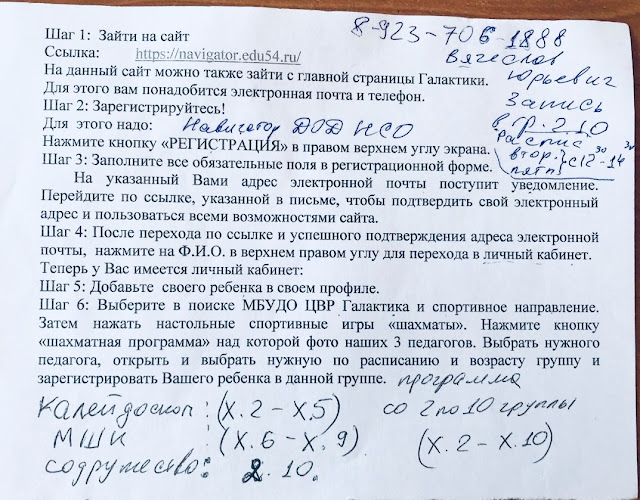 Шаг 1: Зайти на сайт
8-923-706-1888
Ссылка: https://navigator.edu54.ru/
Вячеслав
На данный сайт можно также зайти с главной страницы Галактики.
Юрьевич
Для этого вам понадобится электронная почта и телефон.
Запись
Шаг 2: Зарегистрируйтесь!
в гр. 2.10
Для этого надо: Навигатор ДОД НСО
Нажмите кнопку «РЕГИСТРАЦИЯ» в правом верхнем углу экрана.
распис
Шаг 3: Заполните все обязательные поля в регистрационной форме.
втор. } с 12³⁰-14³⁰
пятн
На указанный Вами адрес электронной почты поступит уведомление.
Перейдите по ссылке, указанной в письме, чтобы подтвердить свой электронный
адрес и пользоваться всеми возможностями сайта.
Шаг 4: После перехода по ссылке и успешного подтверждения адреса электронной
почты, нажмите на Ф.И.О. в верхнем правом углу для перехода в личный кабинет.
Теперь у Вас имеется личный кабинет:
Шаг 5: Добавьте своего ребенка в своем профиле.
Шаг 6: Выберите в поиске МБУДО ЦВР Галактика и спортивное направление.
Затем нажать настольные спортивные игры «шахматы». Нажмите кнопку
«шахматная программа» над которой фото наших 3 педагогов. Выбрать нужного
педагога, открыть и выбрать нужную по расписанию и возрасту группу и
зарегистрировать Вашего ребенка в данной группе. программа
Калейдоскоп: (Х.2 – Х.5) со 2 по 10 группы
МШК : (Х.6 – Х.9) (Х.2 – Х.10)
содружество: 2.10.